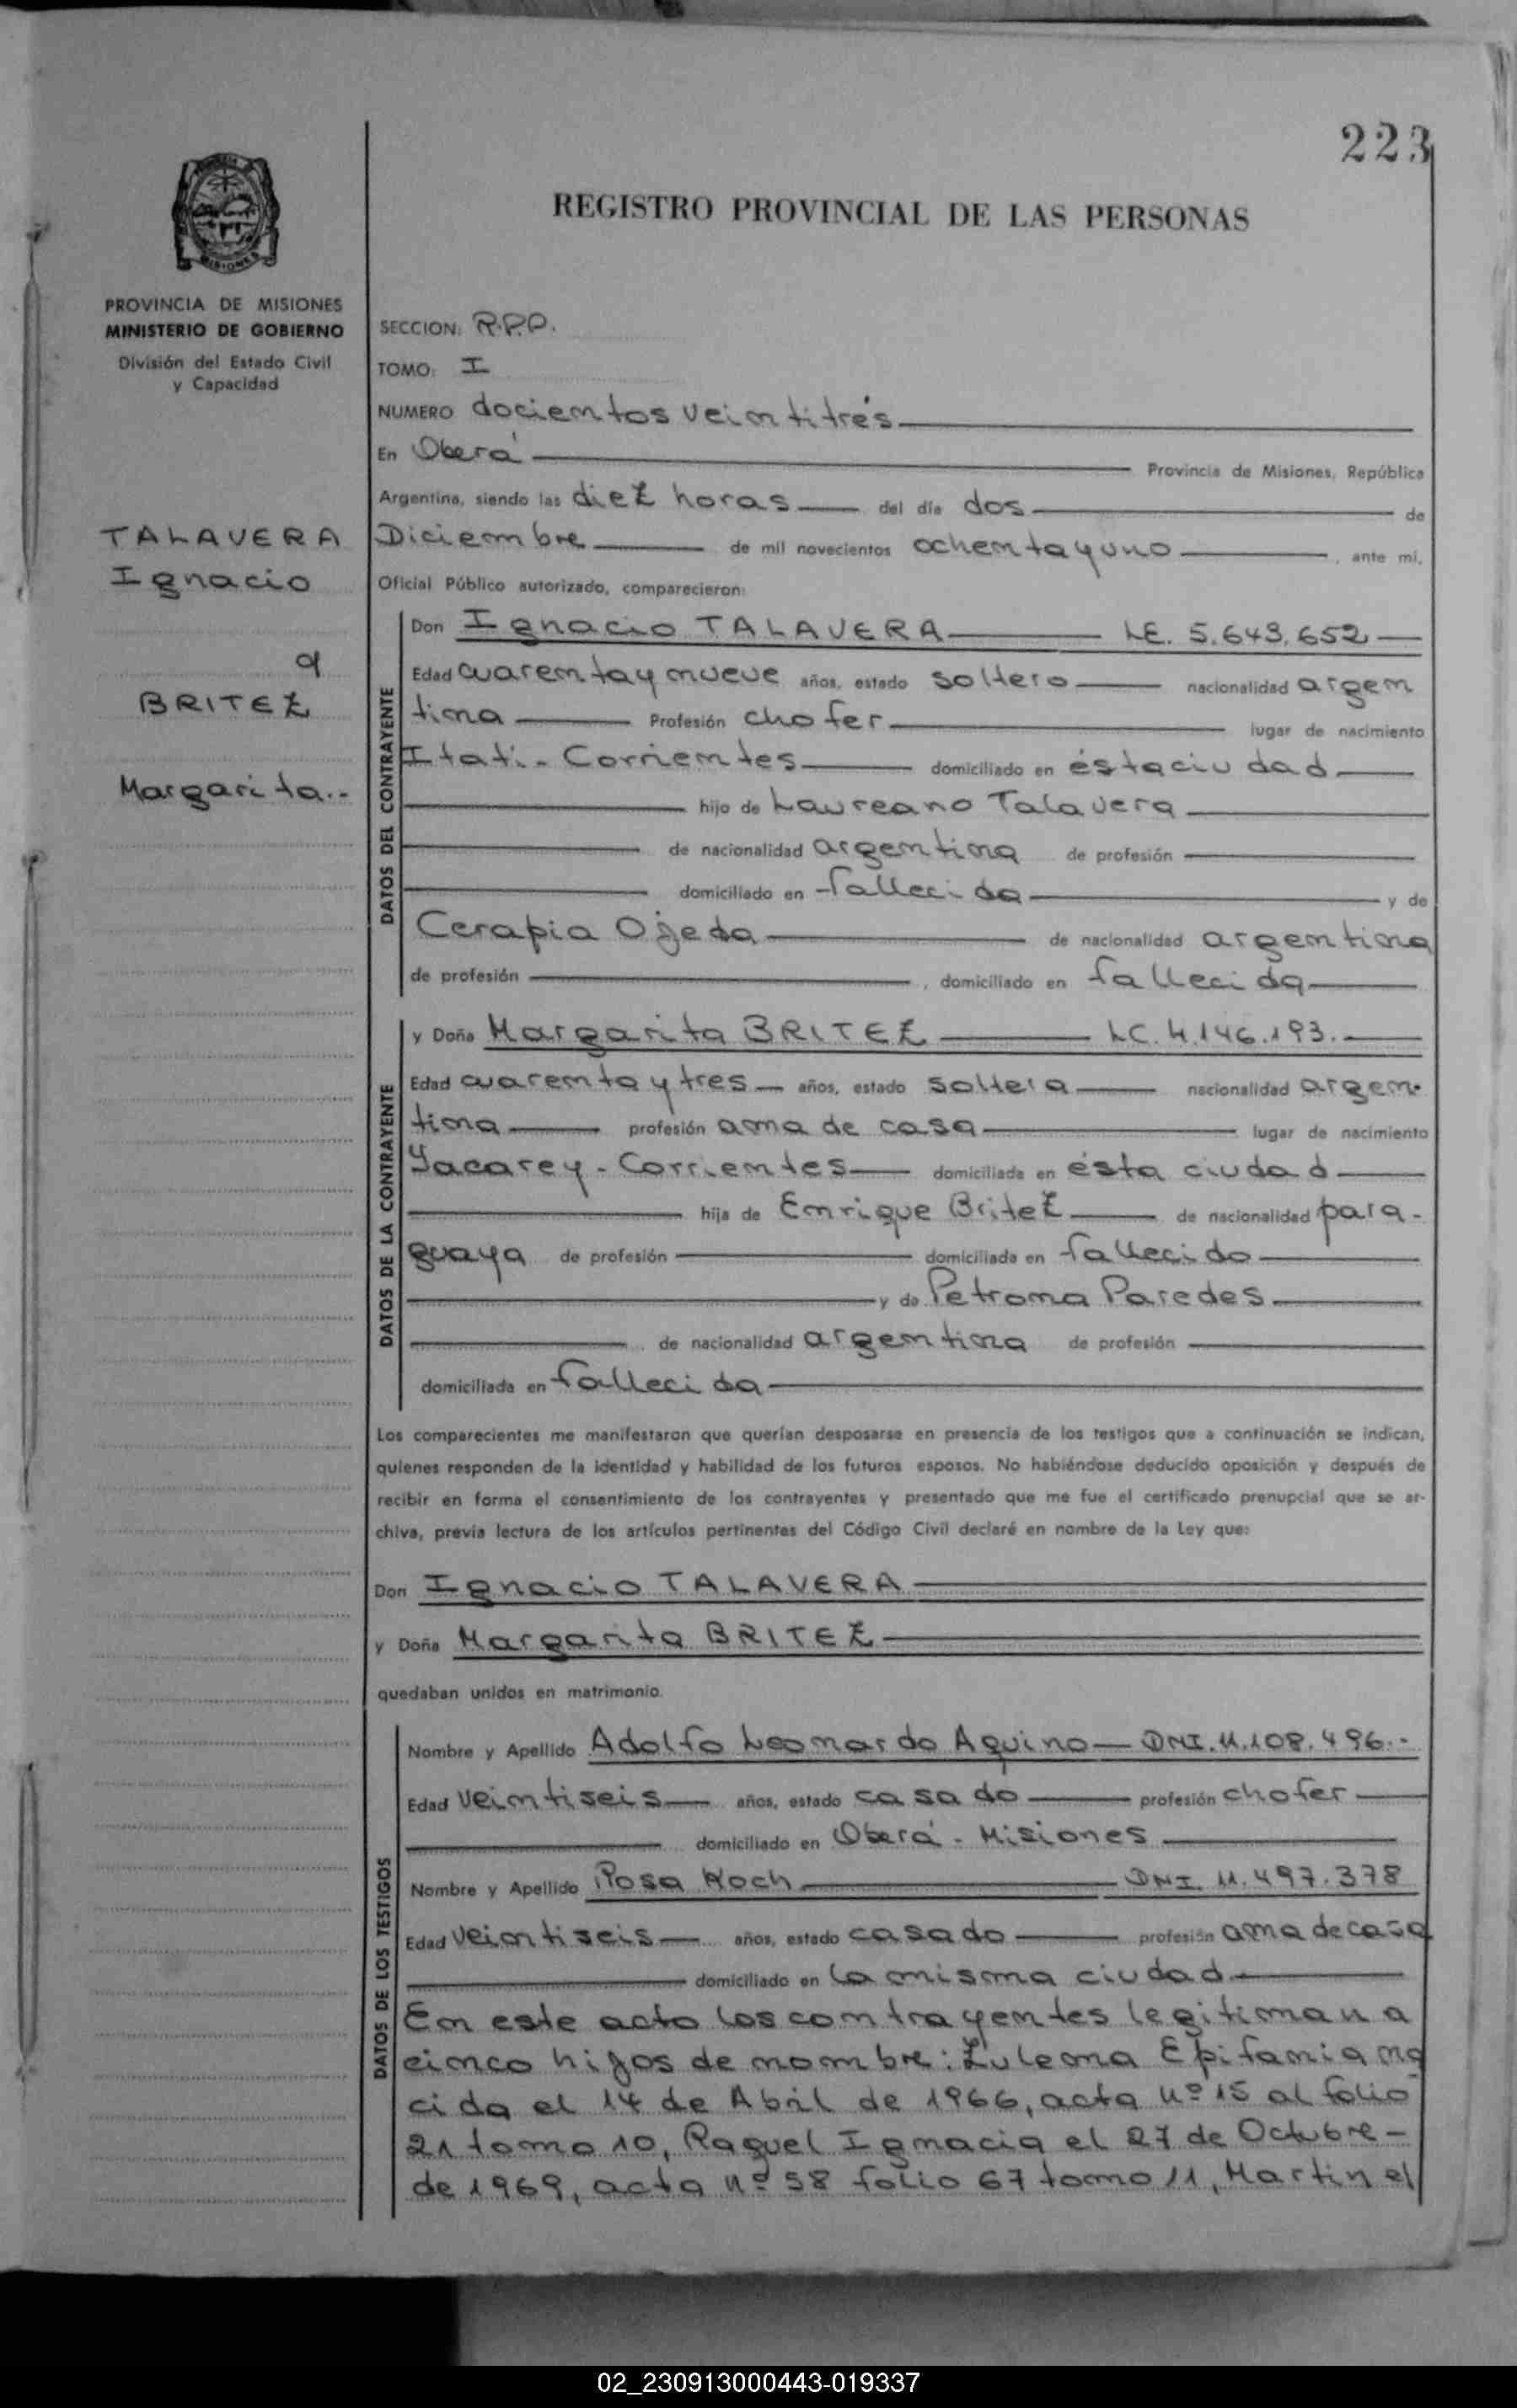 223
REGISTRO PROVINCIAL DE LAS PERSONAS
MISIONES
PROVINCIA DE MISIONES
MINISTERIO DE GOBIERNO
División del Estado Civil
y Capacidad
TALAVERA
Ignacio
q
BRITEZ
Margarita.-
SECCION: R.P.P.
TOMO: I
NUMERO docientos veintitrés
En Oberá Provincia de Misiones, República
Argentina, siendo las diez horas del día dos de
Diciembre de mil novecientos ochentayuno, ante mí,
Oficial Público autorizado, comparecieron:
DATOS DEL CONTRAYENTE
Don Ignacio TALAVERA LE. 5.643.652
Edad cuarentay nueve años, estado soltero nacionalidad argen
tina Profesión chofer lugar de nacimiento
Itati - Corrientes domiciliado en ésta ciudad
hijo de Laureano Talavera
de nacionalidad argentina de profesión
domiciliado en fallecida y de
Cerapia Ojeda de nacionalidad argentina
de profesión , domiciliado en fallecida
DATOS DE LA CONTRAYENTE
y Doña Margarita BRITEZ LC. 4.146.193.
Edad cuarenta y tres años, estado soltera nacionalidad argen-
tina profesión ama de casa lugar de nacimiento
Yacarey - Corrientes domiciliada en ésta ciudad
hija de Enrique Britez de nacionalidad para-
guaya de profesión domiciliada en fallecido
y de Petrona Paredes
de nacionalidad argentina de profesión
domiciliada en fallecida
Los comparecientes me manifestaron que querían desposarse en presencia de los testigos que a continuación se indican,
quienes responden de la identidad y habilidad de los futuros esposos. No habiéndose deducido oposición y después de
recibir en forma el consentimiento de los contrayentes y presentado que me fue el certificado prenupcial que se ar-
chiva, previa lectura de los artículos pertinentes del Código Civil declaré en nombre de la Ley que:
Don Ignacio TALAVERA
y Doña Margarita BRITEZ
quedaban unidos en matrimonio.
DATOS DE LOS TESTIGOS
Nombre y Apellido Adolfo Leonardo Aquino DNI. 11.108.496.-
Edad veintiseis años, estado casado profesión chofer
domiciliado en Oberá - Misiones
Nombre y Apellido Rosa Koch DNI. 11.497.378
Edad veintiseis años, estado casado profesión ama de casa
domiciliado en la misma ciudad
En este acto los contrayentes legitiman a
cinco hijos de nombre: Zulema Epifania na
cida el 14 de Abril de 1966, acta Nº 15 al folio
21 tomo 10, Raquel Ignacia el 27 de Octubre -
de 1969, acta Nº 58 folio 67 tomo 11, Martin el
02_230913000443-019337